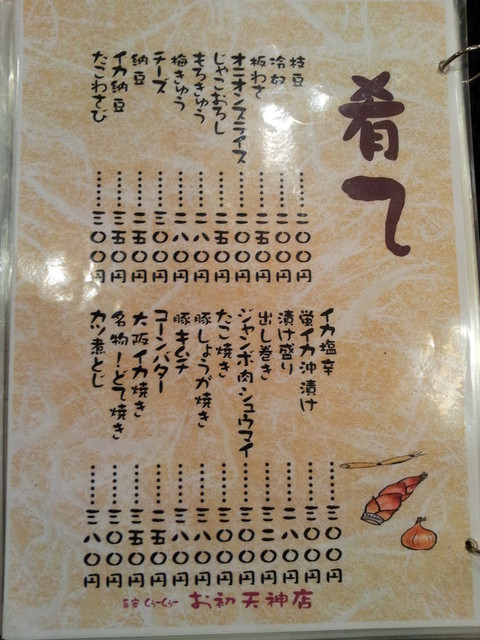 肴て
枝豆……二〇〇円
冷奴……二〇〇円
板わさ……二五〇円
オニオンスライス……二〇〇円
じゃこおろし……二五〇円
もろきゅう……二八〇円
梅きゅう……二八〇円
チーズ……三〇〇円
納豆……二五〇円
イカ納豆……三五〇円
たこわさび……三〇〇円
イカ塩辛……三〇〇円
蛍イカ沖漬け……三〇〇円
漬け盛り……二八〇円
出し巻き……三二〇円
ジャンボ肉シュウマイ……三〇〇円
たこ焼き……三〇〇円
豚しょうが焼き……三八〇円
豚キムチ……三八〇円
コーンバター……二五〇円
大阪イカ焼き……三五〇円
名物！どて焼き……三〇〇円
カツ煮とじ……三八〇円
くぅ〜くぅ〜 お初天神店